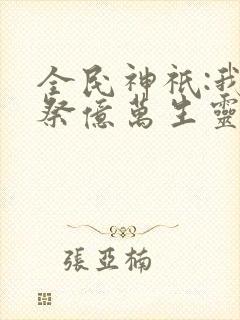 全民神祇:我
祭億萬生靈
張亞楠